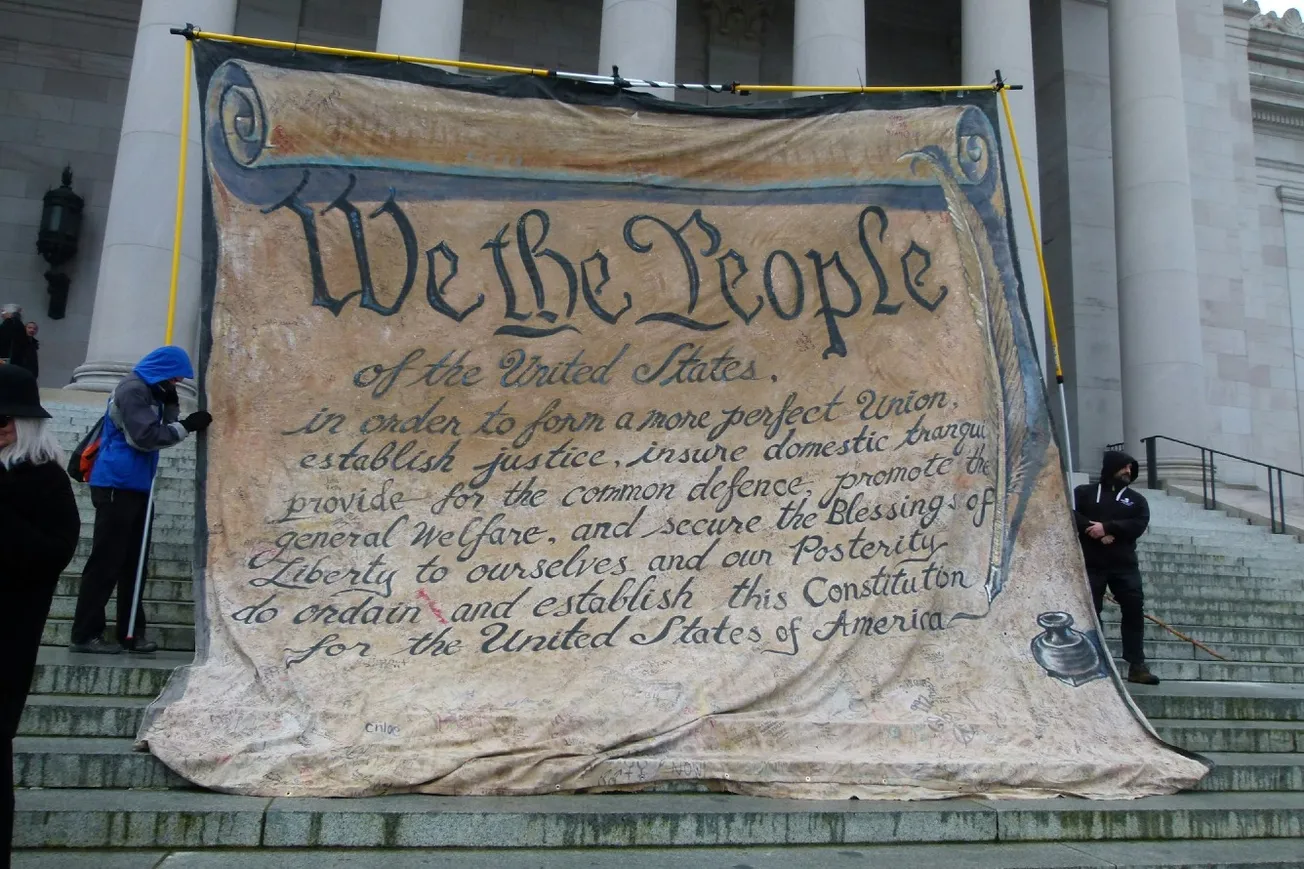 We the People
of the United States,
in order to form a more perfect Union,
establish justice, insure domestic tranqui
provide for the common defence, promote the
general Welfare, and secure the Blessings of
Liberty to ourselves and our Posterity
do ordain and establish this Constitution
for the United States of America
chloe